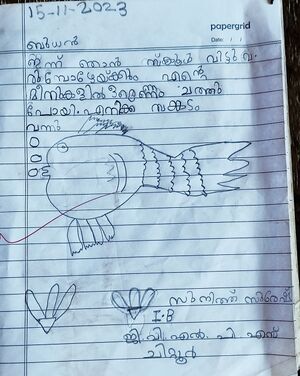 15-11-2023
papergrid
Date: / /
ബുധൻ
ഇന്ന് ഞാൻ സ്കൂൾ വിട്ടു വ
ന്നപ്പോഴേയ്ക്കും എന്റെ
മീനുകളിൽ ഒരെണ്ണം ചത്തു
പോയി. എനിക്കു സങ്കടം
വന്നു
സുനിത്ത് സുരേഷ്
I.B
ജി. വി. എൽ. പി. എസ്
ചിറ്റൂർ